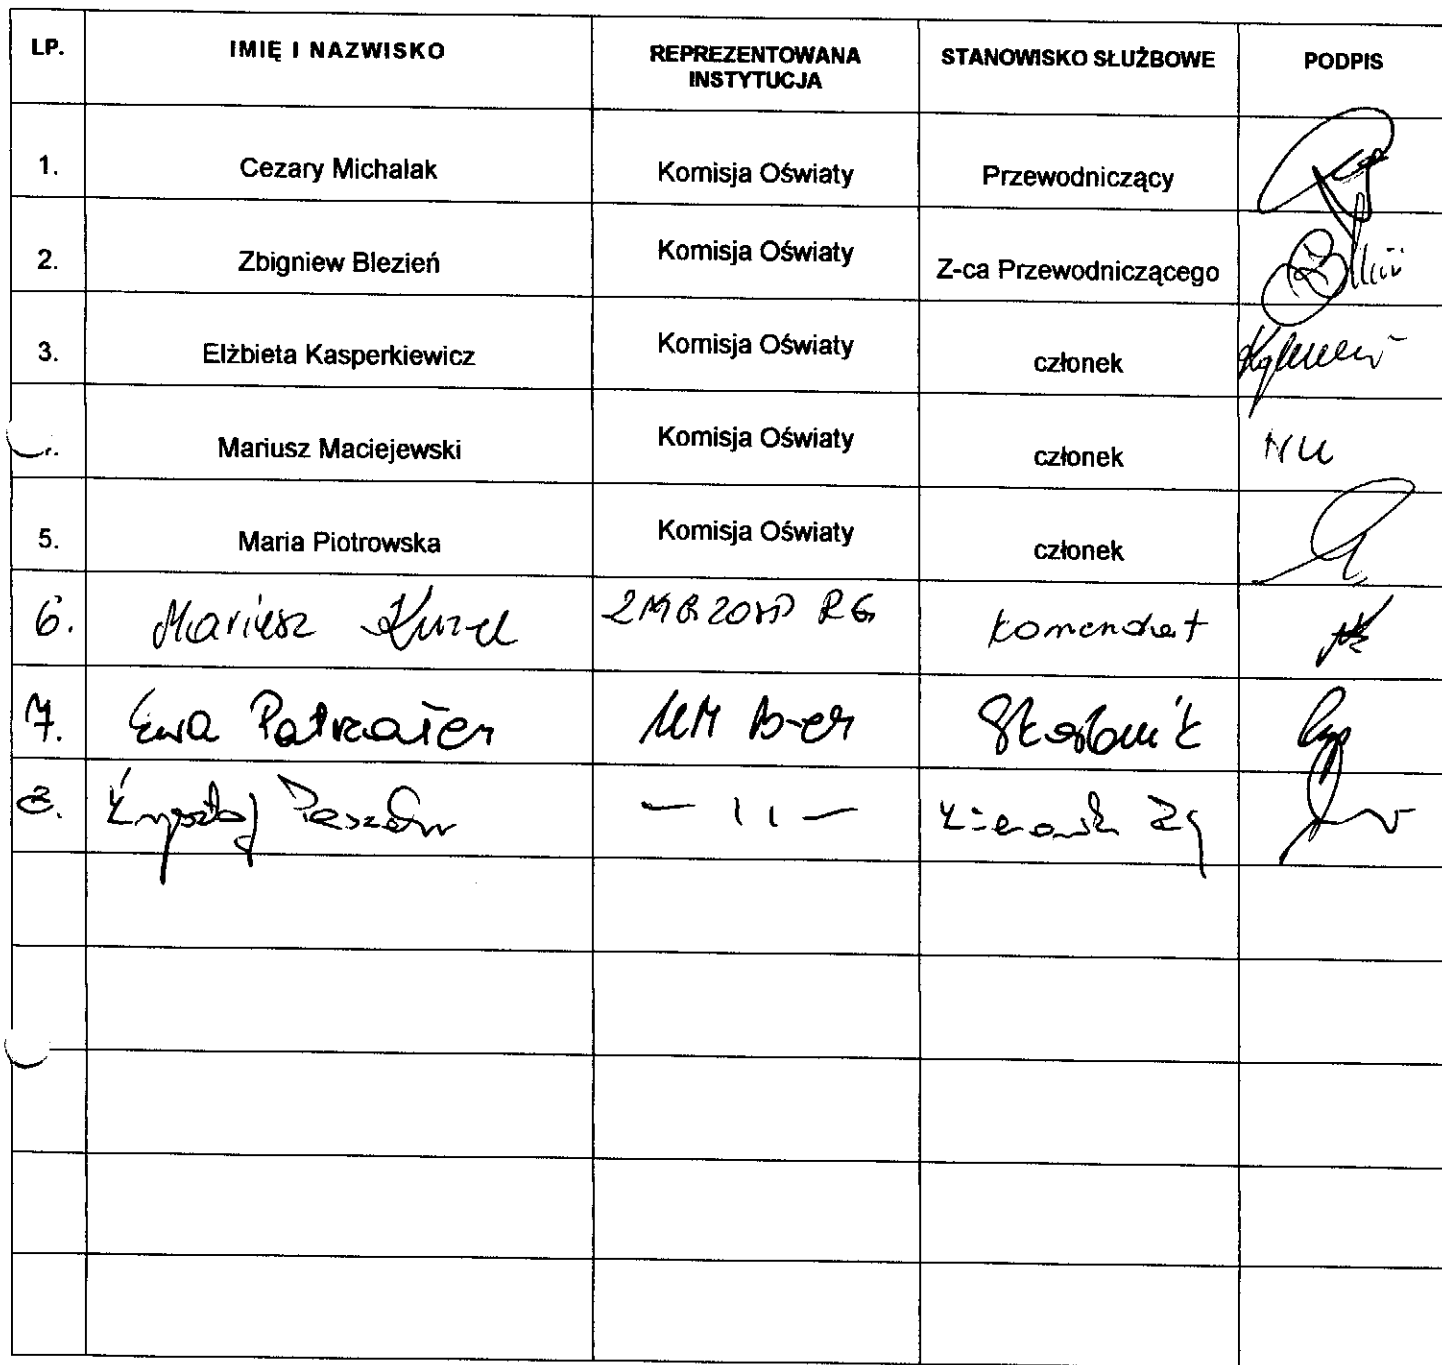 LP. IMIĘ I NAZWISKO REPREZENTOWANA INSTYTUCJA STANOWISKO SŁUŻBOWE PODPIS
1. Cezary Michalak Komisja Oświaty Przewodniczący
2. Zbigniew Blezień Komisja Oświaty Z-ca Przewodniczącego
3. Elżbieta Kasperkiewicz Komisja Oświaty członek
Mariusz Maciejewski Komisja Oświaty członek
5. Maria Piotrowska Komisja Oświaty członek
6. Mariusz Komendant
7. Ewa UM
8. Krzysztof — 11 —